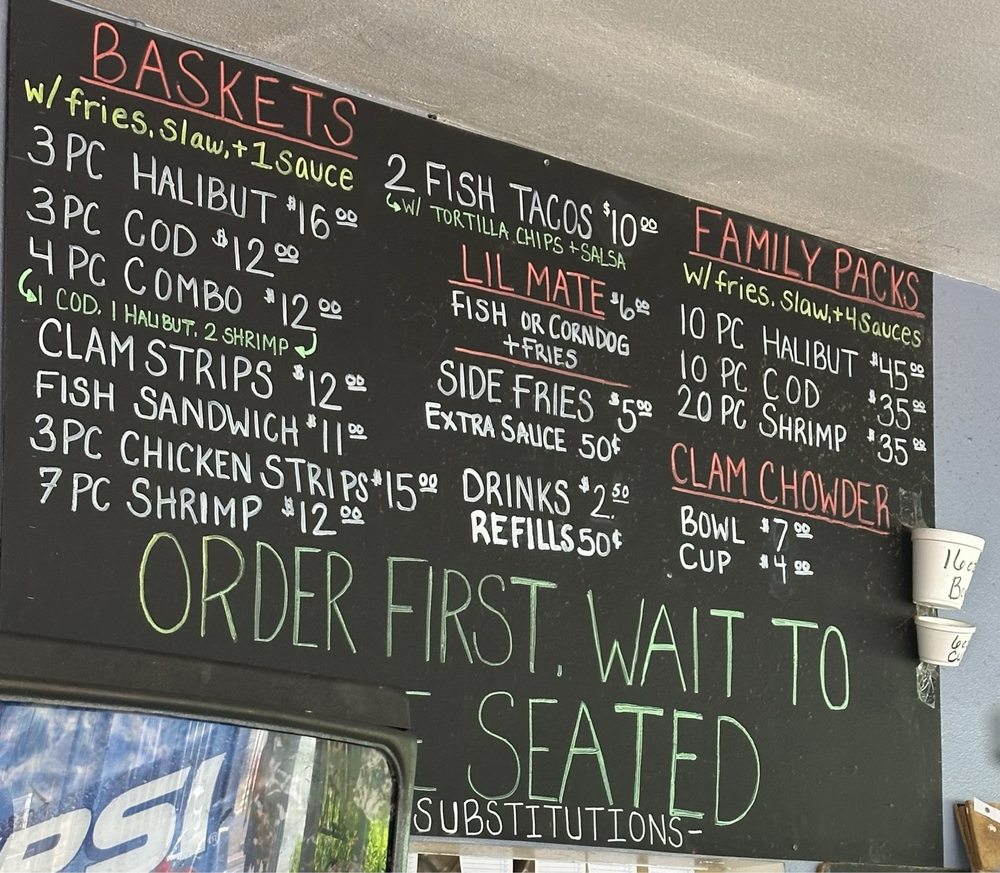 BASKETS
w/fries, slaw, +1 sauce
3 PC HALIBUT $16.00
3 PC COD $12.00
4 PC COMBO $12.00
1 COD, 1 HALIBUT, 2 SHRIMP
CLAM STRIPS $12.00
FISH SANDWICH $11.00
3PC CHICKEN STRIPS $15.00
7 PC SHRIMP $12.00
2 FISH TACOS $10.00
W/ TORTILLA CHIPS + SALSA
LIL MATE $6.00
FISH OR CORNDOG
+FRIES
SIDE FRIES $5.00
EXTRA SAUCE 50¢
DRINKS $2.50
REFILLS 50¢
FAMILY PACKS
w/fries, slaw, +4 sauces
10 PC HALIBUT $45.00
10 PC COD $35.00
20 PC SHRIMP $35.00
CLAM CHOWDER
BOWL $7.00
CUP $4.00
ORDER FIRST, WAIT TO
SEATED
SUBSTITUTIONS-